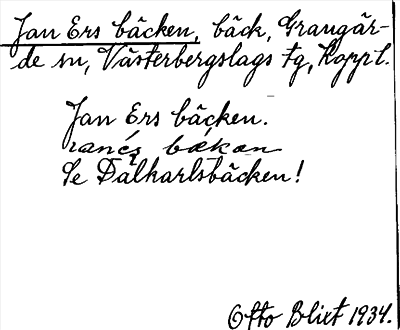 Jan Ers bäcken, bäck, Grangär-
de sn, Västerbergslags tg, Koppl.
Jan Ers bäcken.
bækæn
Se Dalkarlsbäcken!
Otto Blixt 1934.